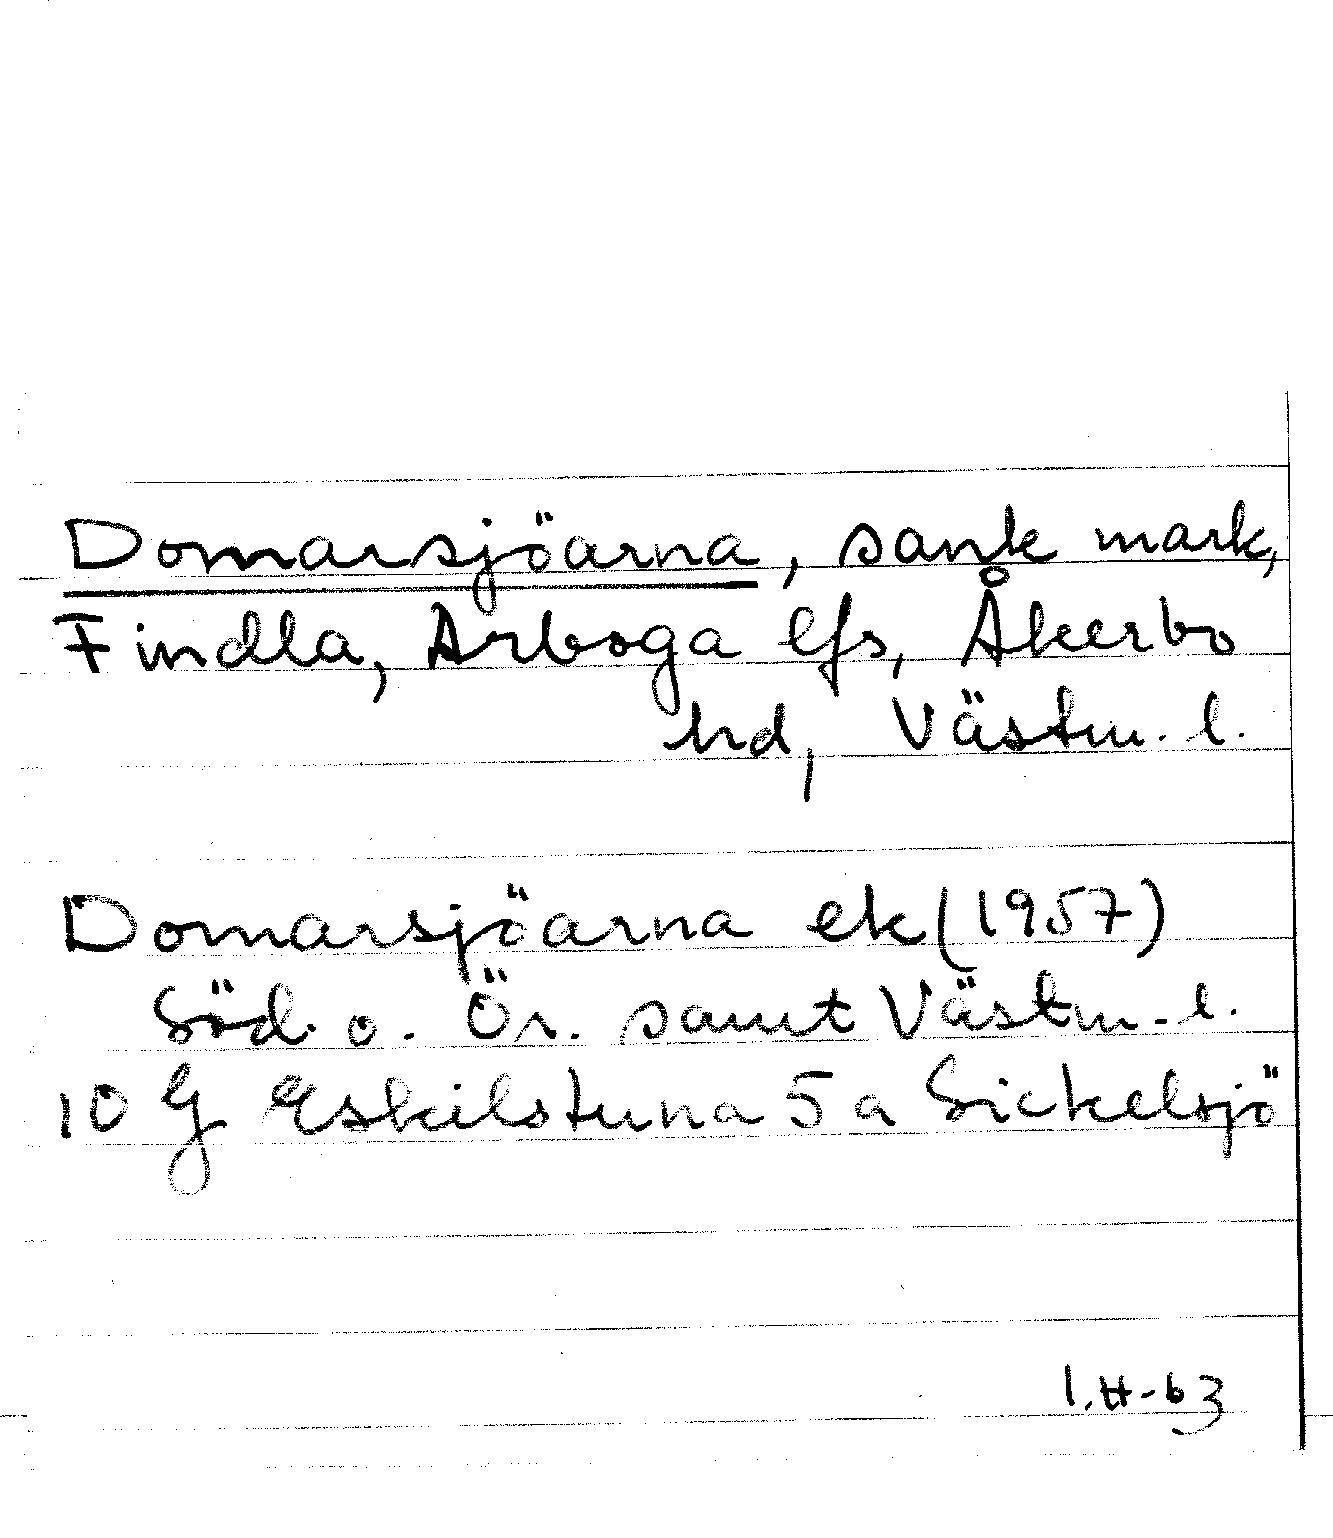 Domarsjöarna, sank mark,
Findla, Arboga lfs, Åkerbo
hd, Västm. l.
Domarsjöarna ek (1957)
Söd. o. Ör. samt Västm. l.
10 G Eskilstuna 5 a Sickelsjö
I.H-63